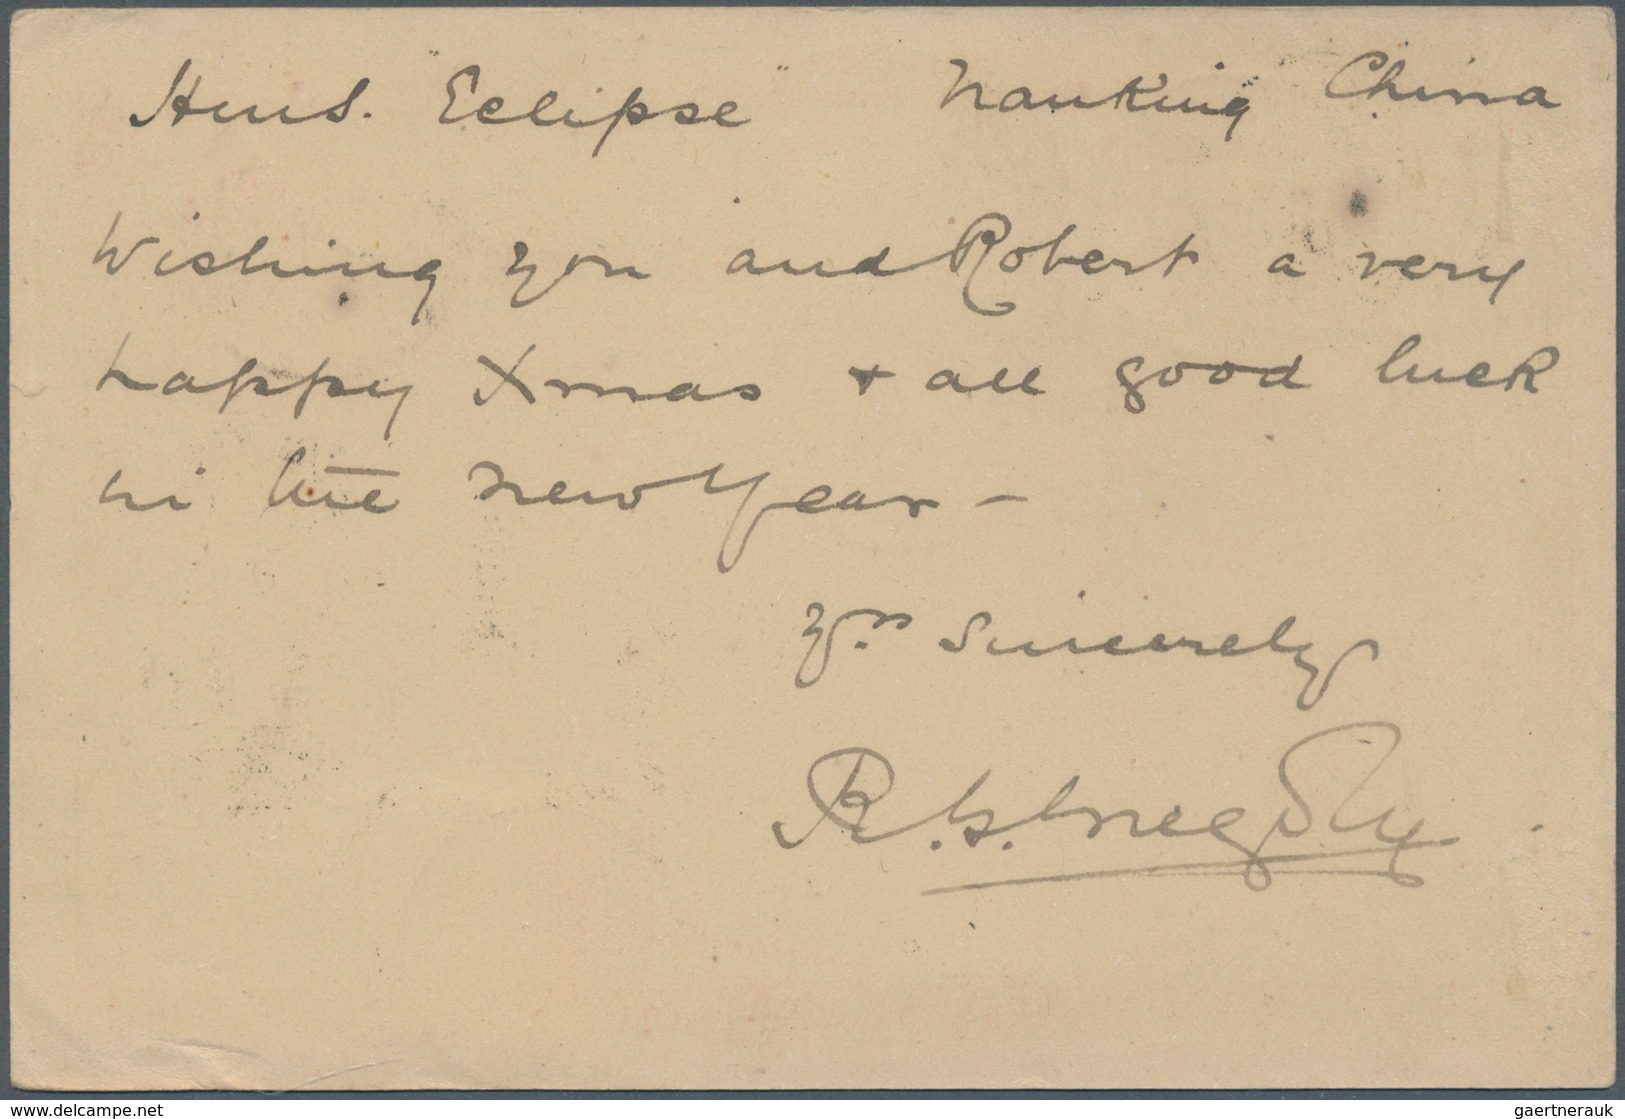 Hms. "Eclipse" Nanking China
Wishing you and Robert a very
happy Xmas + all good luck
in the New Year –
Yrs sincerely
R.G.
delcampe.net
gaertnerauk